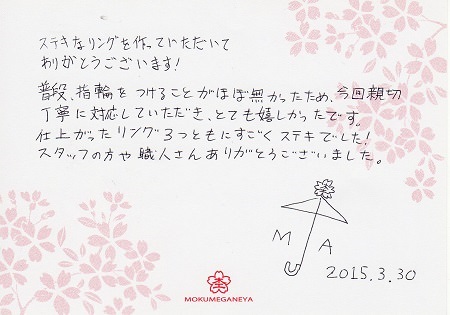 ステキなリングを作っていただいて
ありがとうございます!
普段、指輪をつけることがほぼ無かったため、今回親切
丁寧に対応していただき、とても嬉しかったです。
仕上がったリング3つともにすごくステキでした!
スタッフの方や職人さんありがとうございました。
M A
2015.3.30
MOKUMEGANEYA